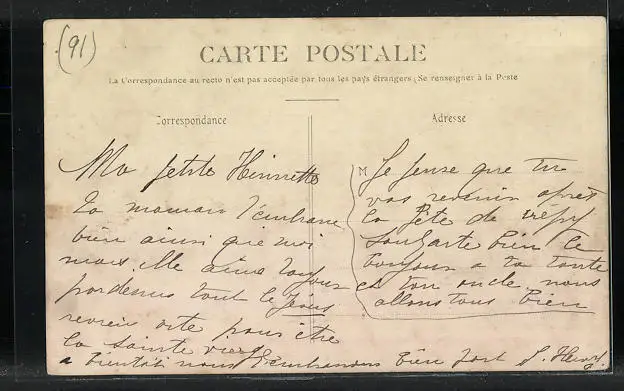 (91)
CARTE POSTALE
La Correspondance au recto n'est pas acceptée par tous les pays étrangers (Se renseigner à la Poste
Correspondance
Adresse
Ma petite Hinrette
ta maman t'embrasse
bien ainsi que moi
mais elle aime toujours
tout le jours
reviens vite
la sainte
a bientôt nous t'embrassons bien fort S. Henry
M Je pense que tu
vas revenir après
la fête de
bien le
bonjour a ta tante
et ton oncle nous
allons tous bien